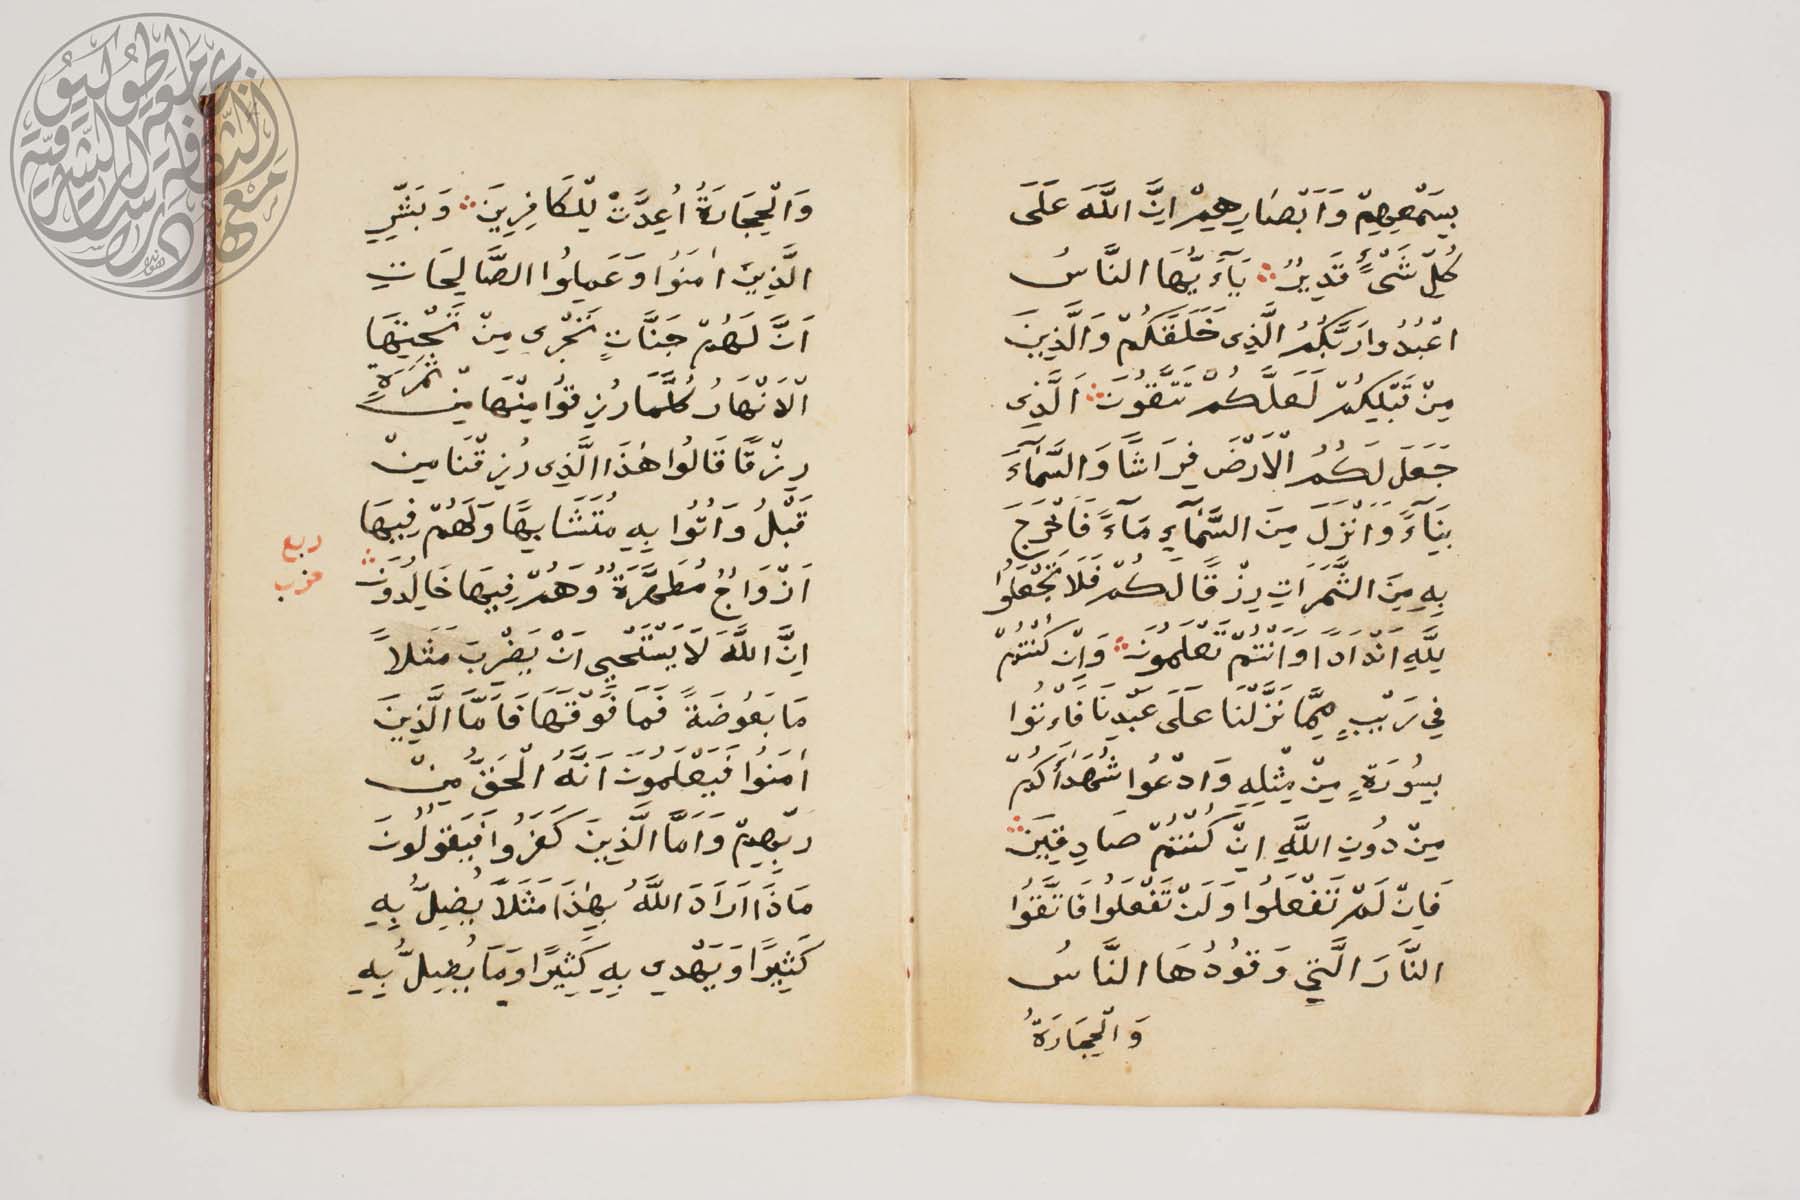 بِسَمْعِهِمْ وَاَبْصَارِهِمْ اِنَّ اللَّهَ عَلَى
كُلِّ شَىْءٍ قَدِيرٌ يَآءَيُّهَا النَّاسُ
اعْبُدُوا رَبَّكُمُ الَّذِى خَلَقَكُمْ وَالَّذِينَ
مِنْ قَبْلِكُمْ لَعَلَّكُمْ تَتَّقُونَ اَلَّذِى
جَعَلَ لَكُمُ الْاَرْضَ فِرَاشًا وَالسَّمَآءَ
بِنَآءً وَاَنْزَلَ مِنَ السَّمَآءِ مَآءً فَاَخْرَجَ
بِهِ مِنَ الثَّمَرَاتِ رِزْقًا لَكُمْ فَلَا تَجْعَلُوا
لِلَّهِ اَنْدَادًا وَاَنْتُمْ تَعْلَمُونَ وَاِنْ كُنْتُمْ
فِى رَيْبٍ مِمَّا نَزَّلْنَا عَلَى عَبْدِنَا فَاءْتُوا
بِسُورَةٍ مِنْ مِثْلِهِ وَادْعُوا شُهَدَآءَكُمْ
مِنْ دُونِ اللَّهِ اِنْ كُنْتُمْ صَادِقِينَ
فَاِنْ لَمْ تَفْعَلُوا وَلَنْ تَفْعَلُوا فَاتَّقُوا
النَّارَ الَّتِى وَقُودُهَا النَّاسُ
وَالْحِجَارَةُ
وَالْحِجَارَةُ اُعِدَّتْ لِلْكَافِرِينَ وَبَشِّرِ
الَّذِينَ اٰمَنُوا وَعَمِلُوا الصَّالِحَاتِ
اَنَّ لَهُمْ جَنَّاتٍ تَجْرِى مِنْ تَحْتِهَا
الْاَنْهَارُ كُلَّمَا رُزِقُوا مِنْهَا مِنْ ثَمَرَةٍ
رِزْقًا قَالُوا هٰذَا الَّذِى رُزِقْنَا مِنْ
قَبْلُ وَاُتُوا بِهِ مُتَشَابِهًا وَلَهُمْ فِيهَا
اَزْوَاجٌ مُطَهَّرَةٌ وَهُمْ فِيهَا خَالِدُونَ
ربع
حزب
اِنَّ اللَّهَ لَا يَسْتَحْيِى اَنْ يَضْرِبَ مَثَلًا
مَا بَعُوضَةً فَمَا فَوْقَهَا فَاَمَّا الَّذِينَ
اٰمَنُوا فَيَعْلَمُونَ اَنَّهُ الْحَقُّ مِنْ
رَبِّهِمْ وَاَمَّا الَّذِينَ كَفَرُوا فَيَقُولُونَ
مَاذَا اَرَادَ اللَّهُ بِهٰذَا مَثَلًا يُضِلُّ بِهِ
كَثِيرًا وَيَهْدِى بِهِ كَثِيرًا وَمَا يُضِلُّ بِهِ